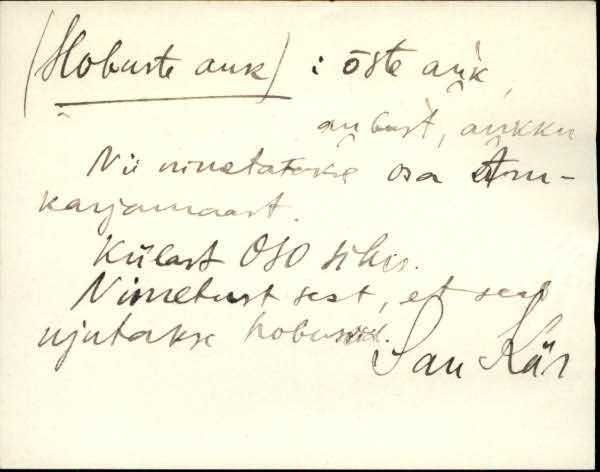 (Hobuste auk) : õste auk,
august, aukku
Nii nimetatakse osa Äru-
karjamaast.
Külast OSO sihis.
Nimetust sest, et seal
ujutakse hobused.
San Kär